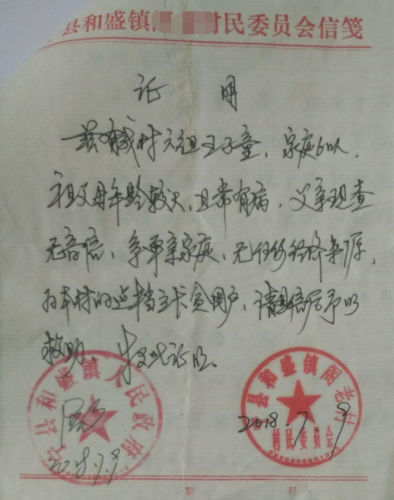 县和盛镇 村民委员会信笺
证 明
兹有我村六组王子童，家庭6口人，
祖父母年龄较大，且常有病，父亲现查
无音信，为单亲家庭，无任何经济来源，
为本村的建档立卡贫困户，请 给予以
救助，特此证明。
县和盛镇人民政府
2018.7.9
县和盛镇阁老村
村民委员会
2018.7.9